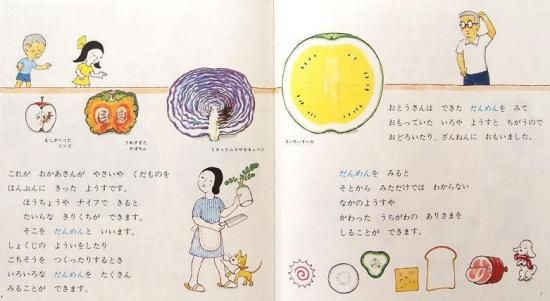 むしがくった
リンゴ
うれすぎた
かぼちゃ
しまったムラサキキャベツ
これが おかあさんが やさいや くだものを
はんぶんに きった ようすです。
ほうちょうや ナイフで きると
たいらな きりくちが できます。
そこを だんめんと いいます。
しょくじの よういをしたり
ごちそうを つくったりするとき
いろいろな だんめんを たくさん
みることが できます。
きいろいすいか
おとうさんは できた だんめんを みて
おもっていた いろや ようすと ちがうので
おどろいたり、ざんねんに おもいました。
だんめんを みると
そとから みただけでは わからない
なかのようすや
かわった うちがわの ありさまを
しることが できます。